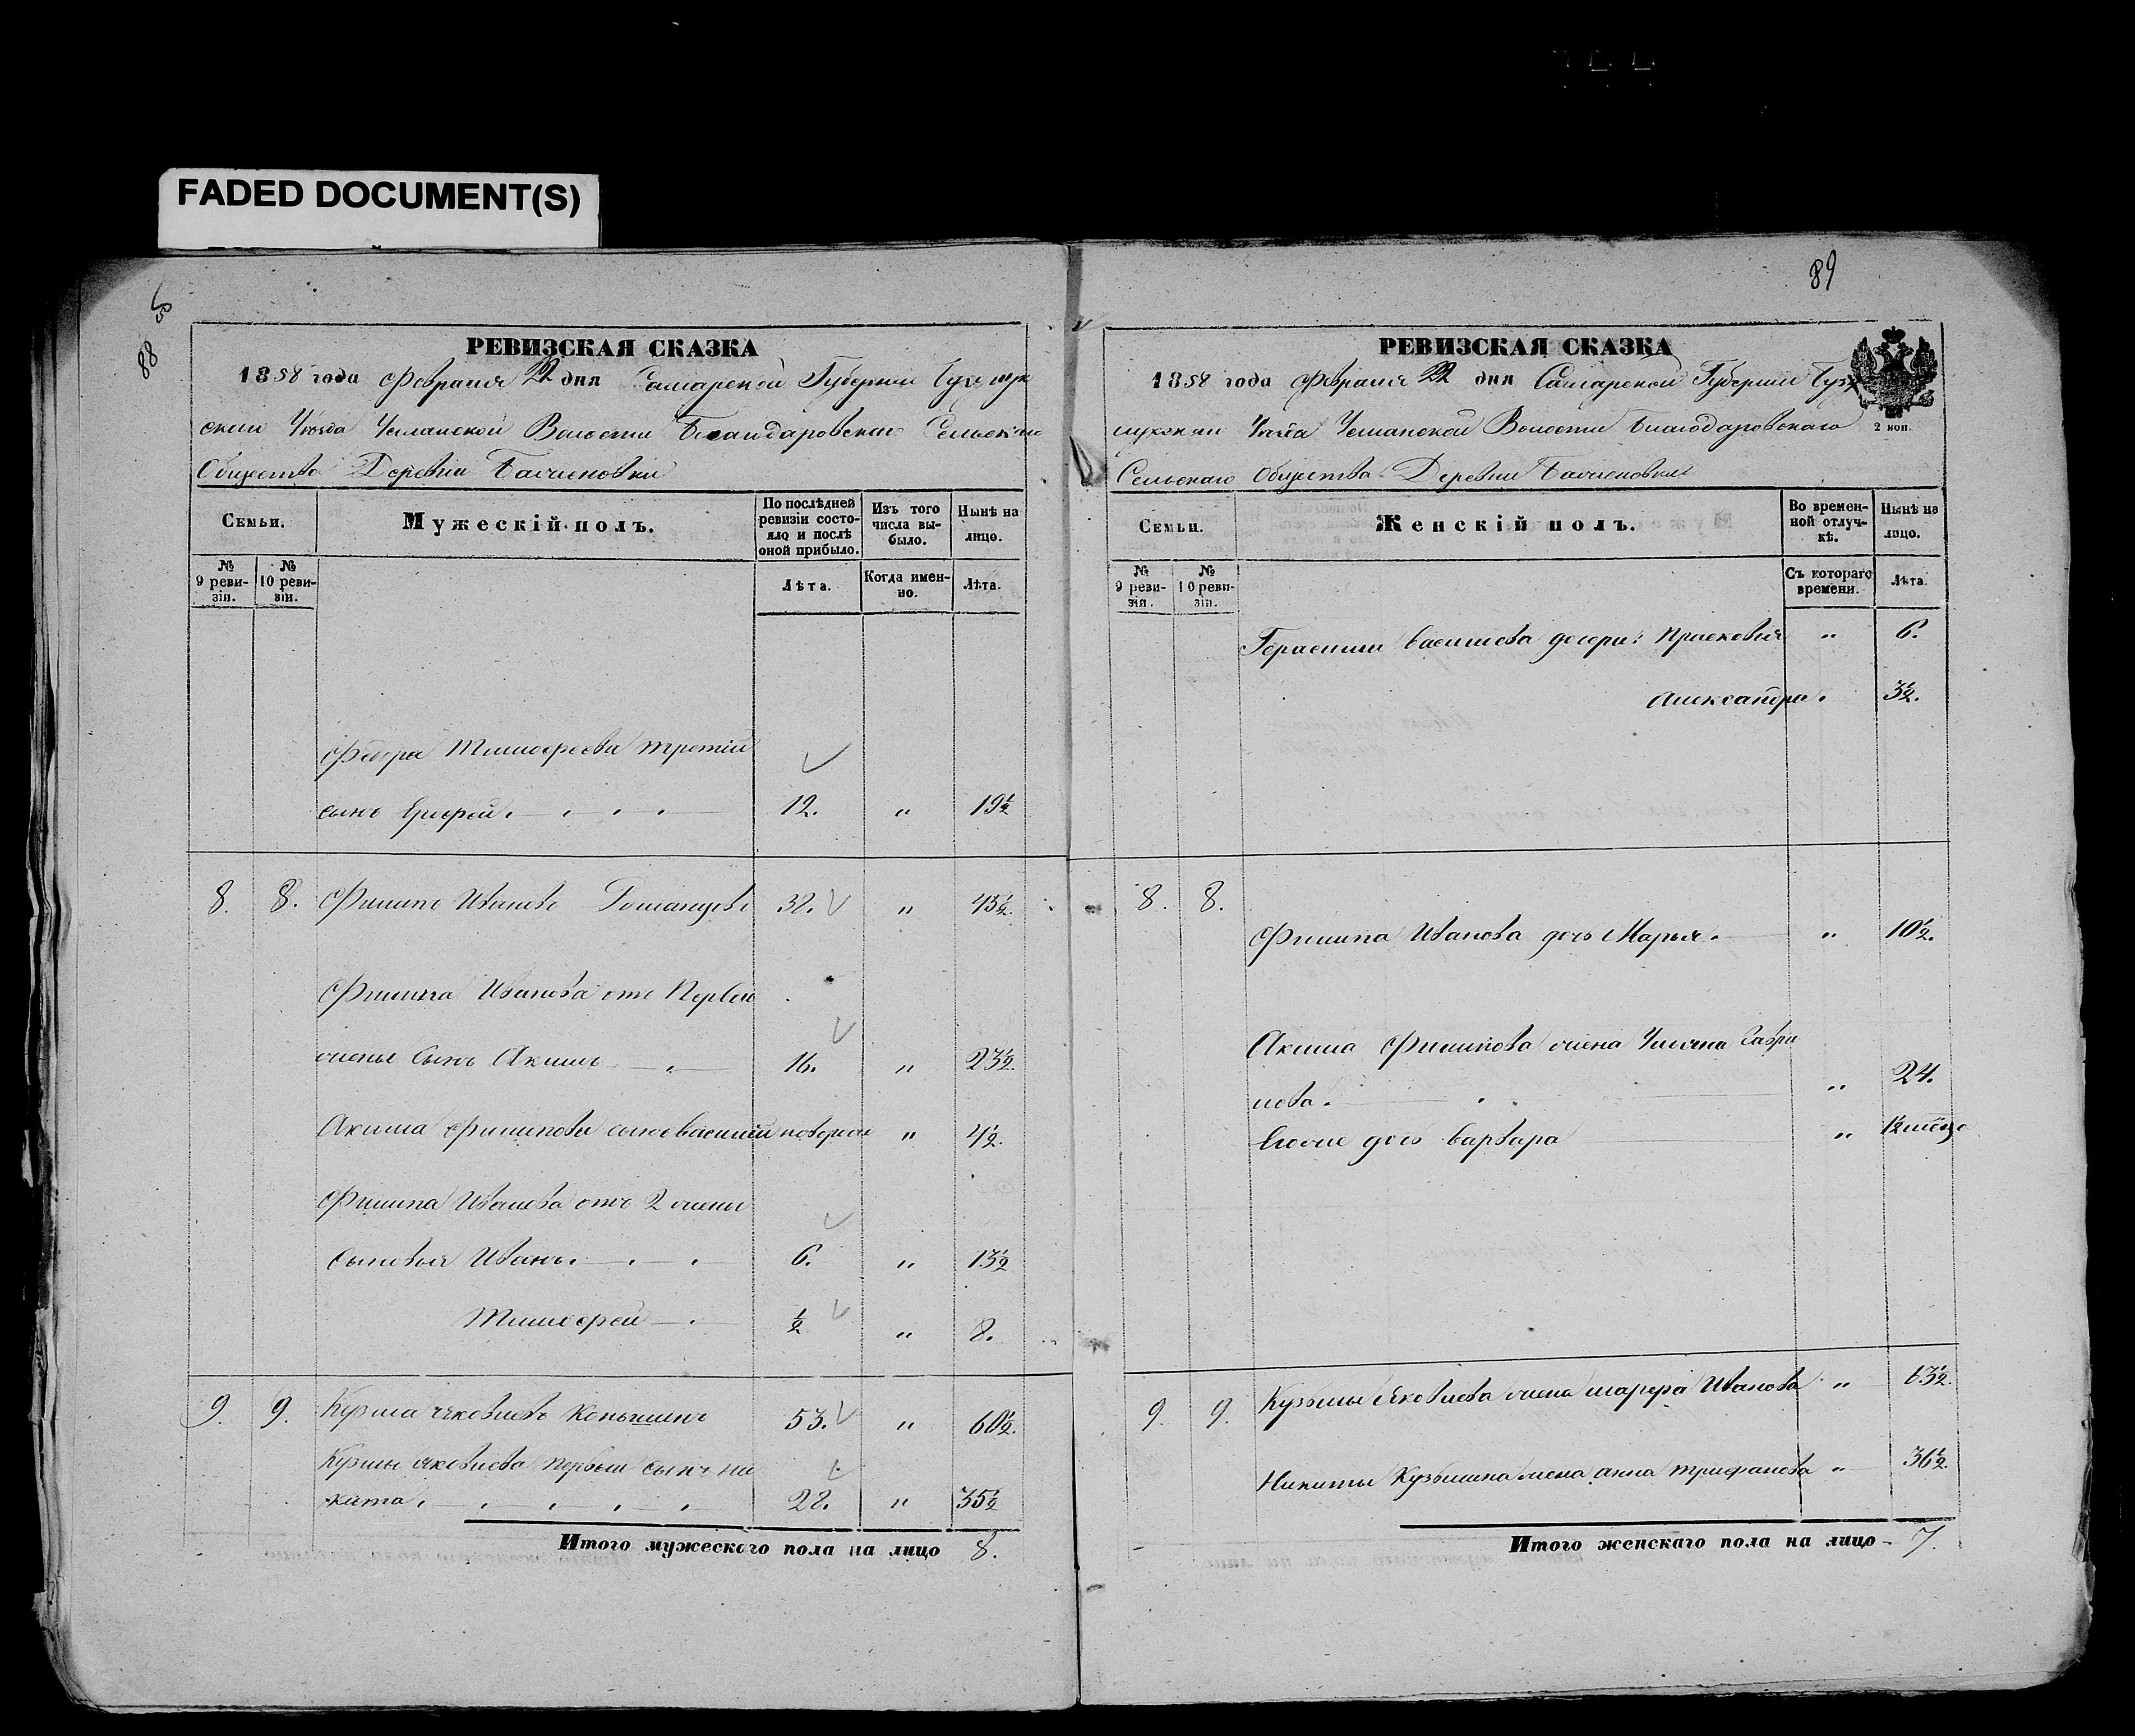 FADED DOCUMENT(S)
88
РЕВИЗСКАЯ СКАЗКА
1858 года Февраля 22 дня Самарской Губернии Бузулук
скаго Уезда Волости Сельскаго
Общества Деревни
Семьи.
Мужескій полъ.
По послѣдней ревизіи состо-
яло и послѣ
оной прибыло.
Изъ того
числа вы-
было.
Нынѣ на
лицо.
№
9 реви-
зіи.
№
10 реви-
зіи.
Лѣта.
Когда имен-
но.
Лѣта.
Федора Тимофеева третій
сынъ Ерофей. 12. " 19½
8. 8. Филипъ Ивановъ 38. " 45½.
Филипа Ивановa отъ Первой
жены сынъ Акимъ 16. " 23½.
Акима Филипова сынъ Василий новорож " 4½.
Филипа Иванова отъ 2 жены
сыновья Иванъ. 6. " 13½
Тимофей ½ " 8.
9. 9. Кузма Яковлевъ 53. " 60½.
Кузмы Яковлева первый сынъ Ни
кита. 28. " 35½
Итого мужескаго пола на лицо 8.
89
РЕВИЗСКАЯ СКАЗКА
2 коп.
1858 года Февраля 22 дня Самарской Губернии Бузу
лукскаго Уезда Волости Благодаровскаго
Сельскаго Общества Деревни
Семьи.
Женскій полъ.
Во времен-
ной отлуч-
кѣ.
Нынѣ на
лицо.
№
9 реви-
зіи.
№
10 реви-
зіи.
Съ котораго
времени.
Лѣта.
Герасима Васильева дочери: Прасковья " 6.
Александра. 3½.
8. 8.
Филипа Иванова дочь Марья. " 10½.
Акима Филипова жена Ульяна Гаври
лова. " 24.
дочь Варвара "
9. 9. Кузьмы Яковлева жена Марфа Иванова " 63½.
Никиты Кузьмина жена анна трифанова " 36½.
Итого женскаго пола на лицо - 7.